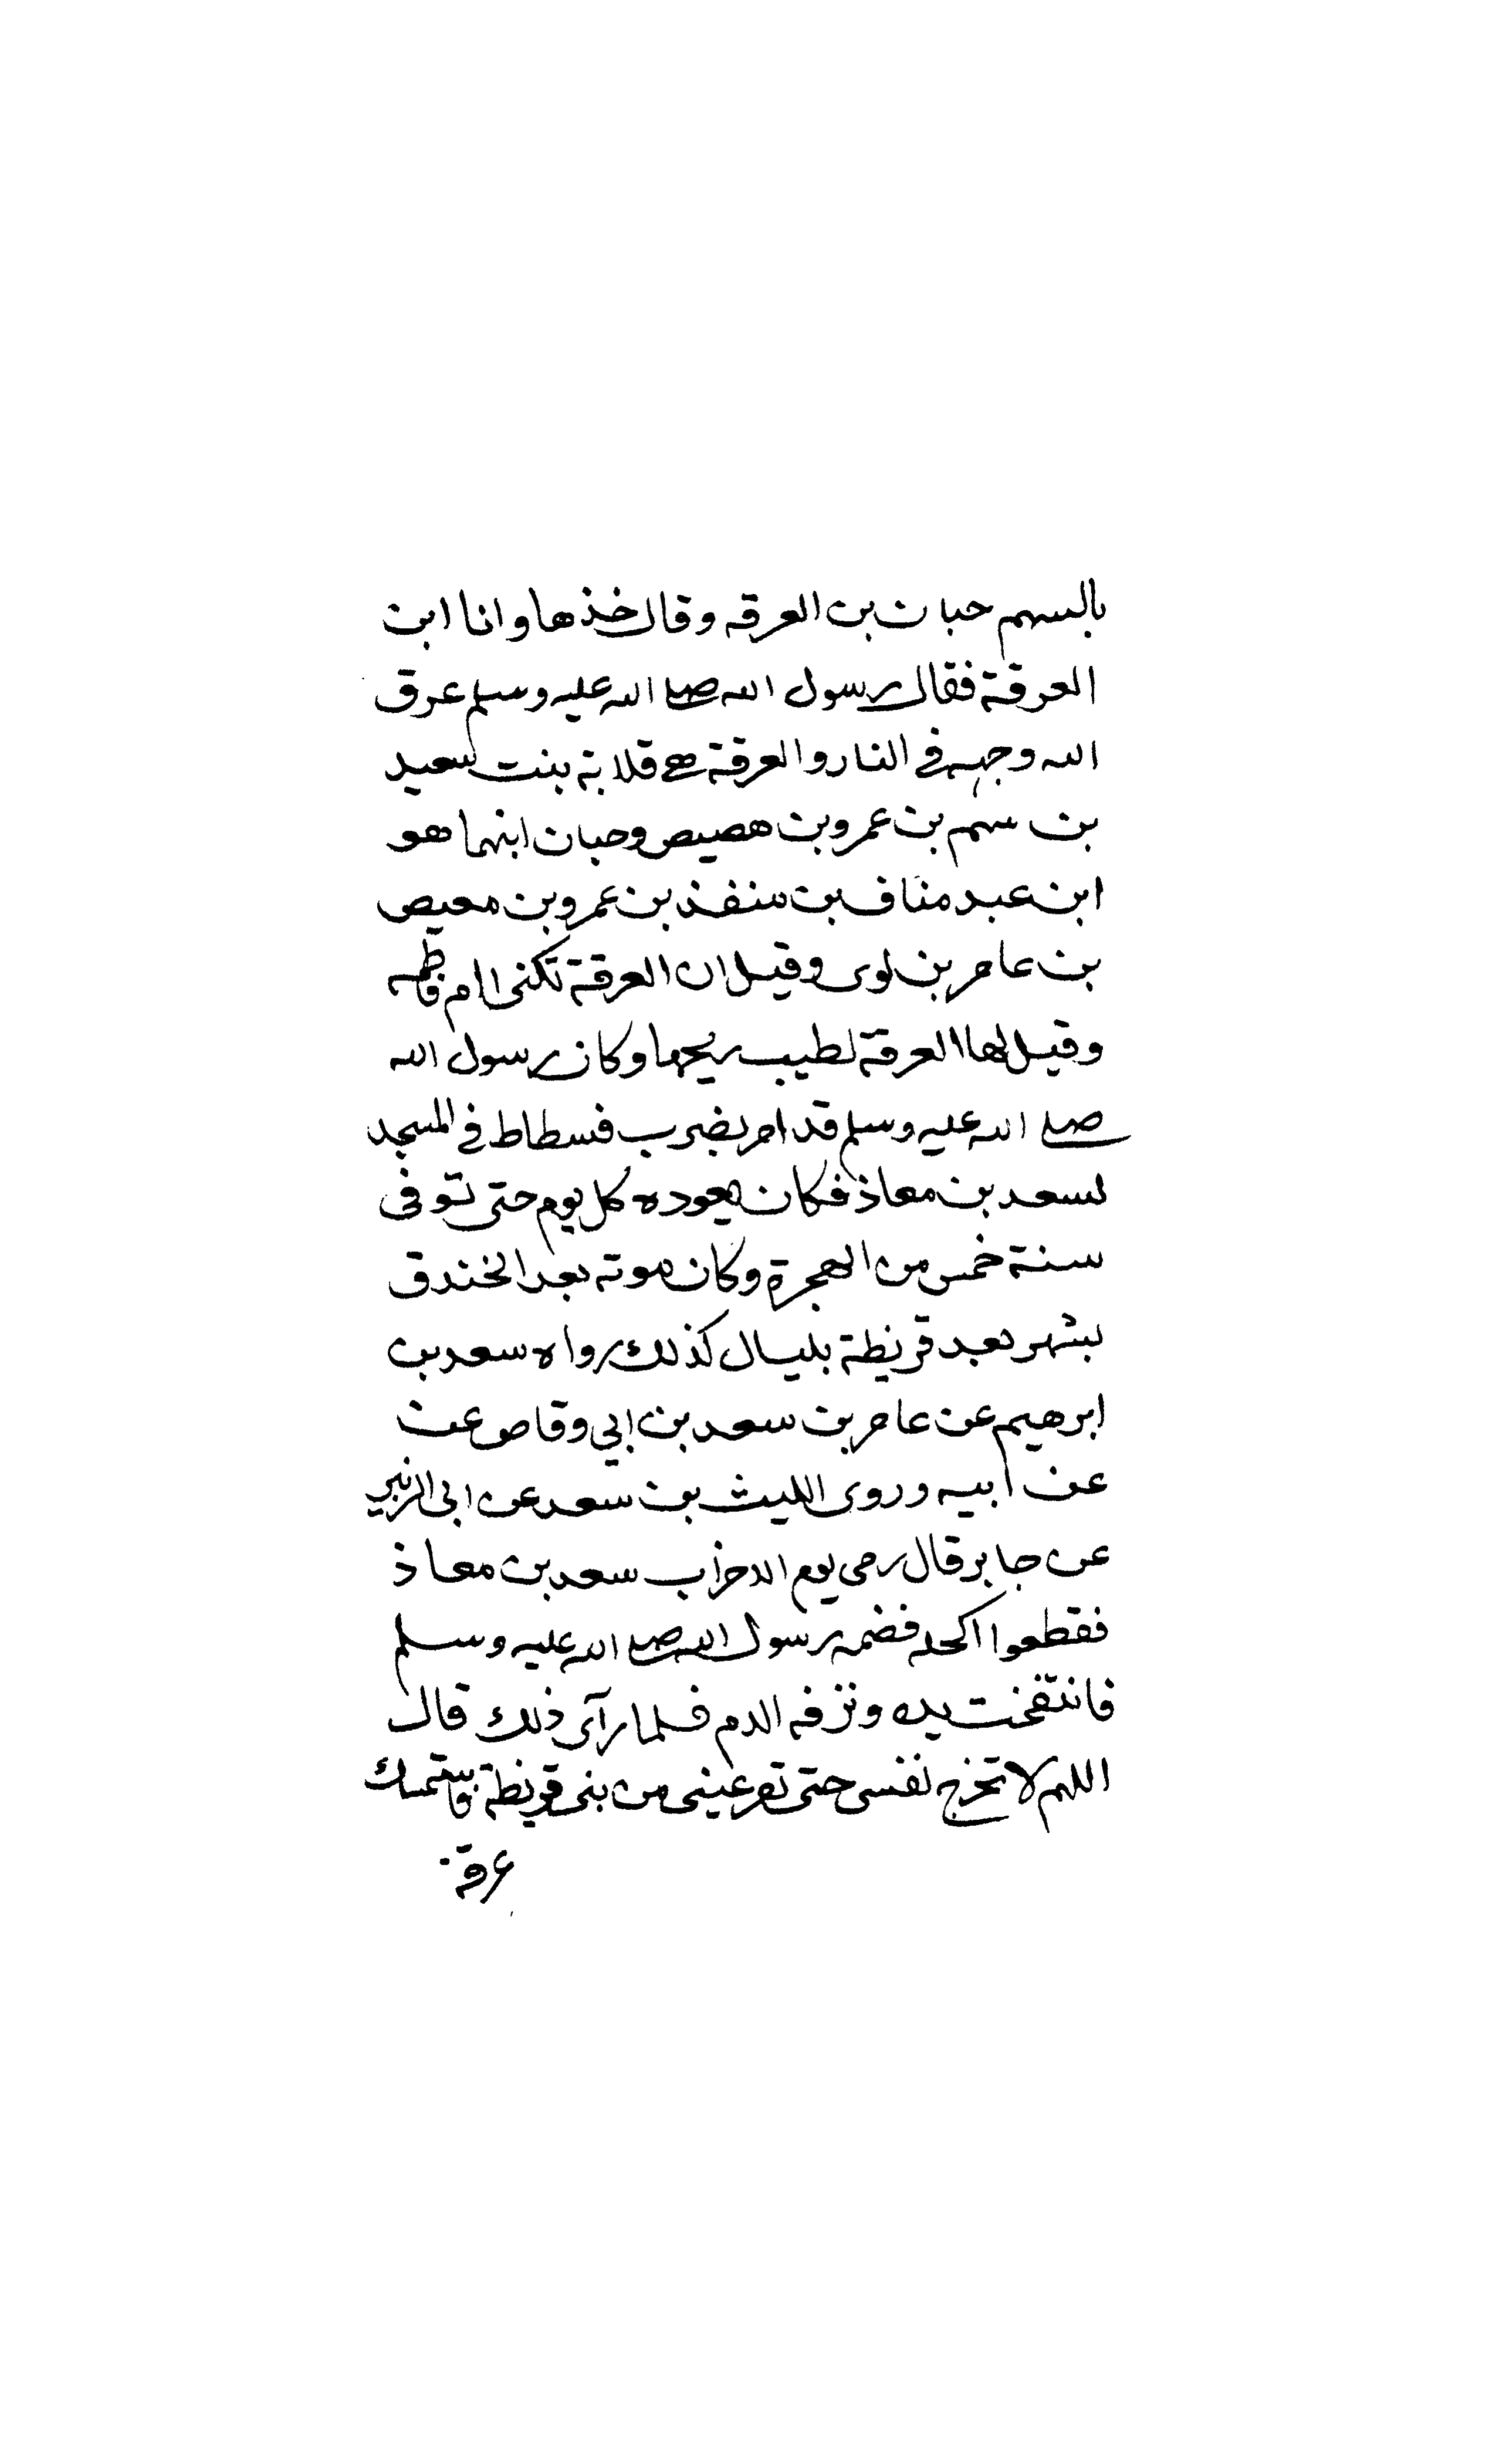 بالسهم حبان بن العرقه وقال خذها وانا ابن
العرقة فقال رسول الله صلى الله عليه وسلم عرق
الله وجهه في النار والعرقة هي قلابة بنت سعيد
بن سهم بن عمرو بن هصيص وحبان ابنهما هو
ابن عبد مناف بن منفذ بن عمرو بن معيص
بن عامر بن لوى وقيل ان العرقة تكنى ام فاطمه
وقيل لها العرقة لطيب ريحها وكان رسول الله
صلى الله عليه وسلم قد امر بضرب فسطاط في المسجد
لسعد بن معاذ فكان يعوده كل يوم حتى توفى
سنة خمس من الهجرة وكان موته بعد الخندق
بشهر بعد قريظة بليال كذلك رواه سعد بن
ابرهيم عن عامر بن سعد بن ابي وقاص عن
عن ابيه وروى الليث بن سعد عن ابى الزبير
عن جابر قال رمى يوم الاحزاب سعد بن معاذ
فقطعوا اكحله فضمه رسول الله صلى الله عليه وسلم
فانتفخت يده ونزفه الدم فلما رآى ذلك قال
اللهم لا تخرج نفسى حتى تقر عينى من بنى قريظة فاستمسك
عرقة